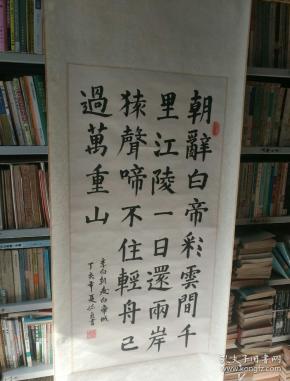 朝辭白帝彩雲間千
里江陵一日還兩岸
猿聲啼不住輕舟已
過萬重山
李白朝慈白帝城
丁亥年夏